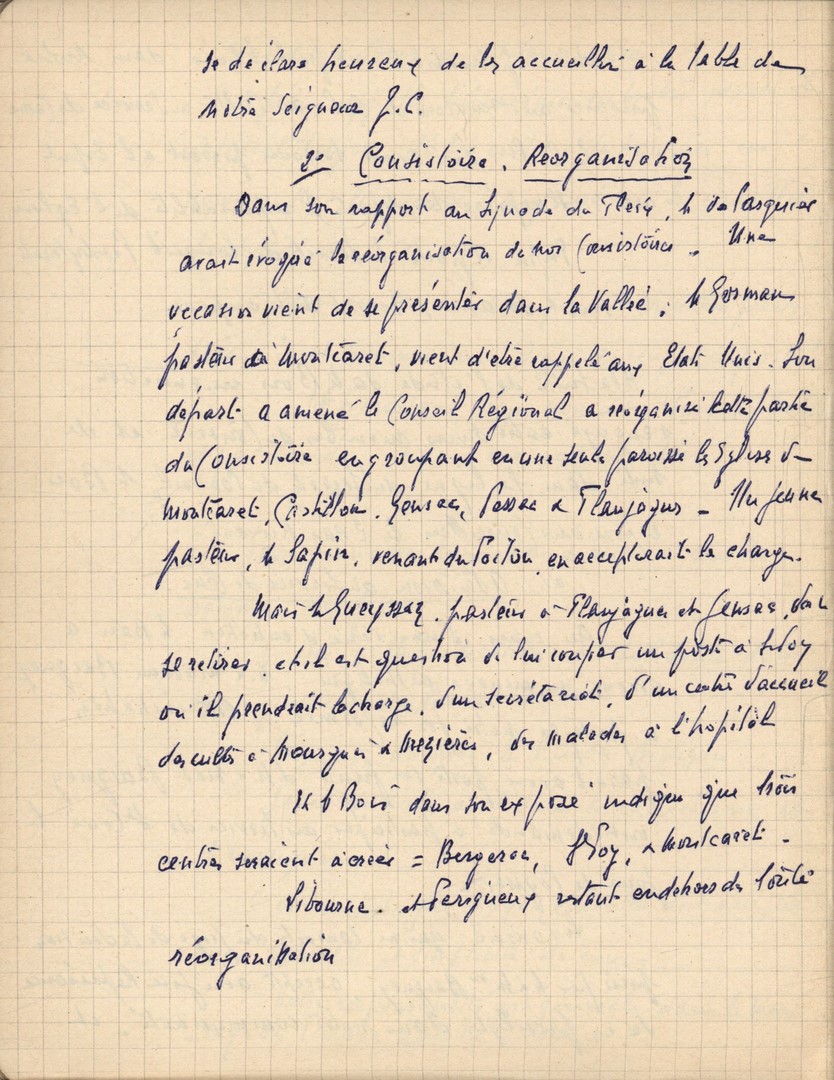 se déclare heureux de les accueillir à la table de
Notre Seigneur J.C.
2° Consistoire. Réorganisation
Dans son rapport au Synode du M.
avait évoqué la réorganisation de nos Consistoire. Une
occasion vient de se présenter dans la Vallée ; M
pasteur à Montcaret, vient d'être rappelé aux Etats Unis. Son
départ a amené le Conseil Régional a réorganiser cette partie
du Consistoire en groupant en une seule paroisse les Eglises de
Montcaret, Castillon, Gensac, Pessac & Flaujagues - Un jeune
pasteur, M Sapin, venant du Poitou, en accepterait la charge.
Mais M Gueyssaz, pasteur à Flaujagues et Gensac, doit
se retirer et il est question de lui confier un poste à Ste Foy
où il prendrait la charge, d'un secrétariat, d'un centre d'accueil
des cultes à & Mézières, des malades à l'hopital
M le Bois dans son exposé indique que trois
centres seraient à créer = Bergerac, Ste Foy, & Montcaret -
Libourne. et Périgueux restant en dehors de toute
réorganisation